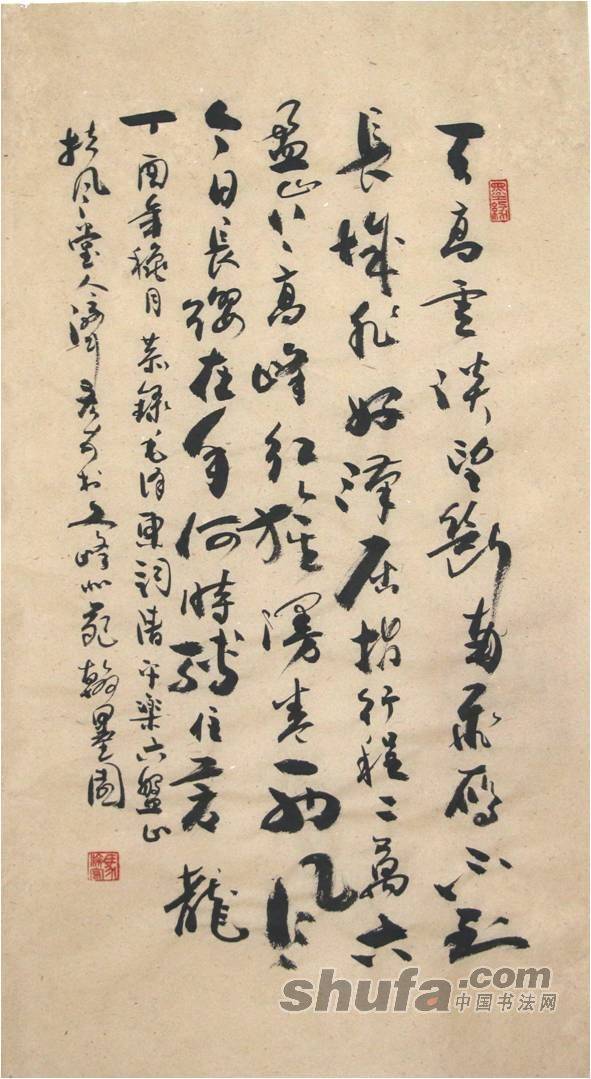 天高雲淡望斷南飛雁不到
長城非好漢屈指行程二萬六
盤山上高峰紅旗漫卷西風
今日長纓在手何時縛住蒼龍
丁酉年穐月恭錄毛泽東詞清平樂六盤山
扶風堂人於文峰北苑翰墨園
shufa.com
中国书法网